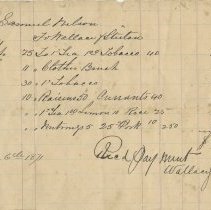 Samuel Wilson
To Wallace &
75 To 1 Tea 1 Tobacco 40
11 " Clothes Brush
30 " 1 Tobacco
10 " Raisins 50 Currants 40
" 1 Tea 1 Lemons 10 Rice 25
" Nutmegs 5 25 Pork 10 250
6th 1871
Recd Payment
Wallace